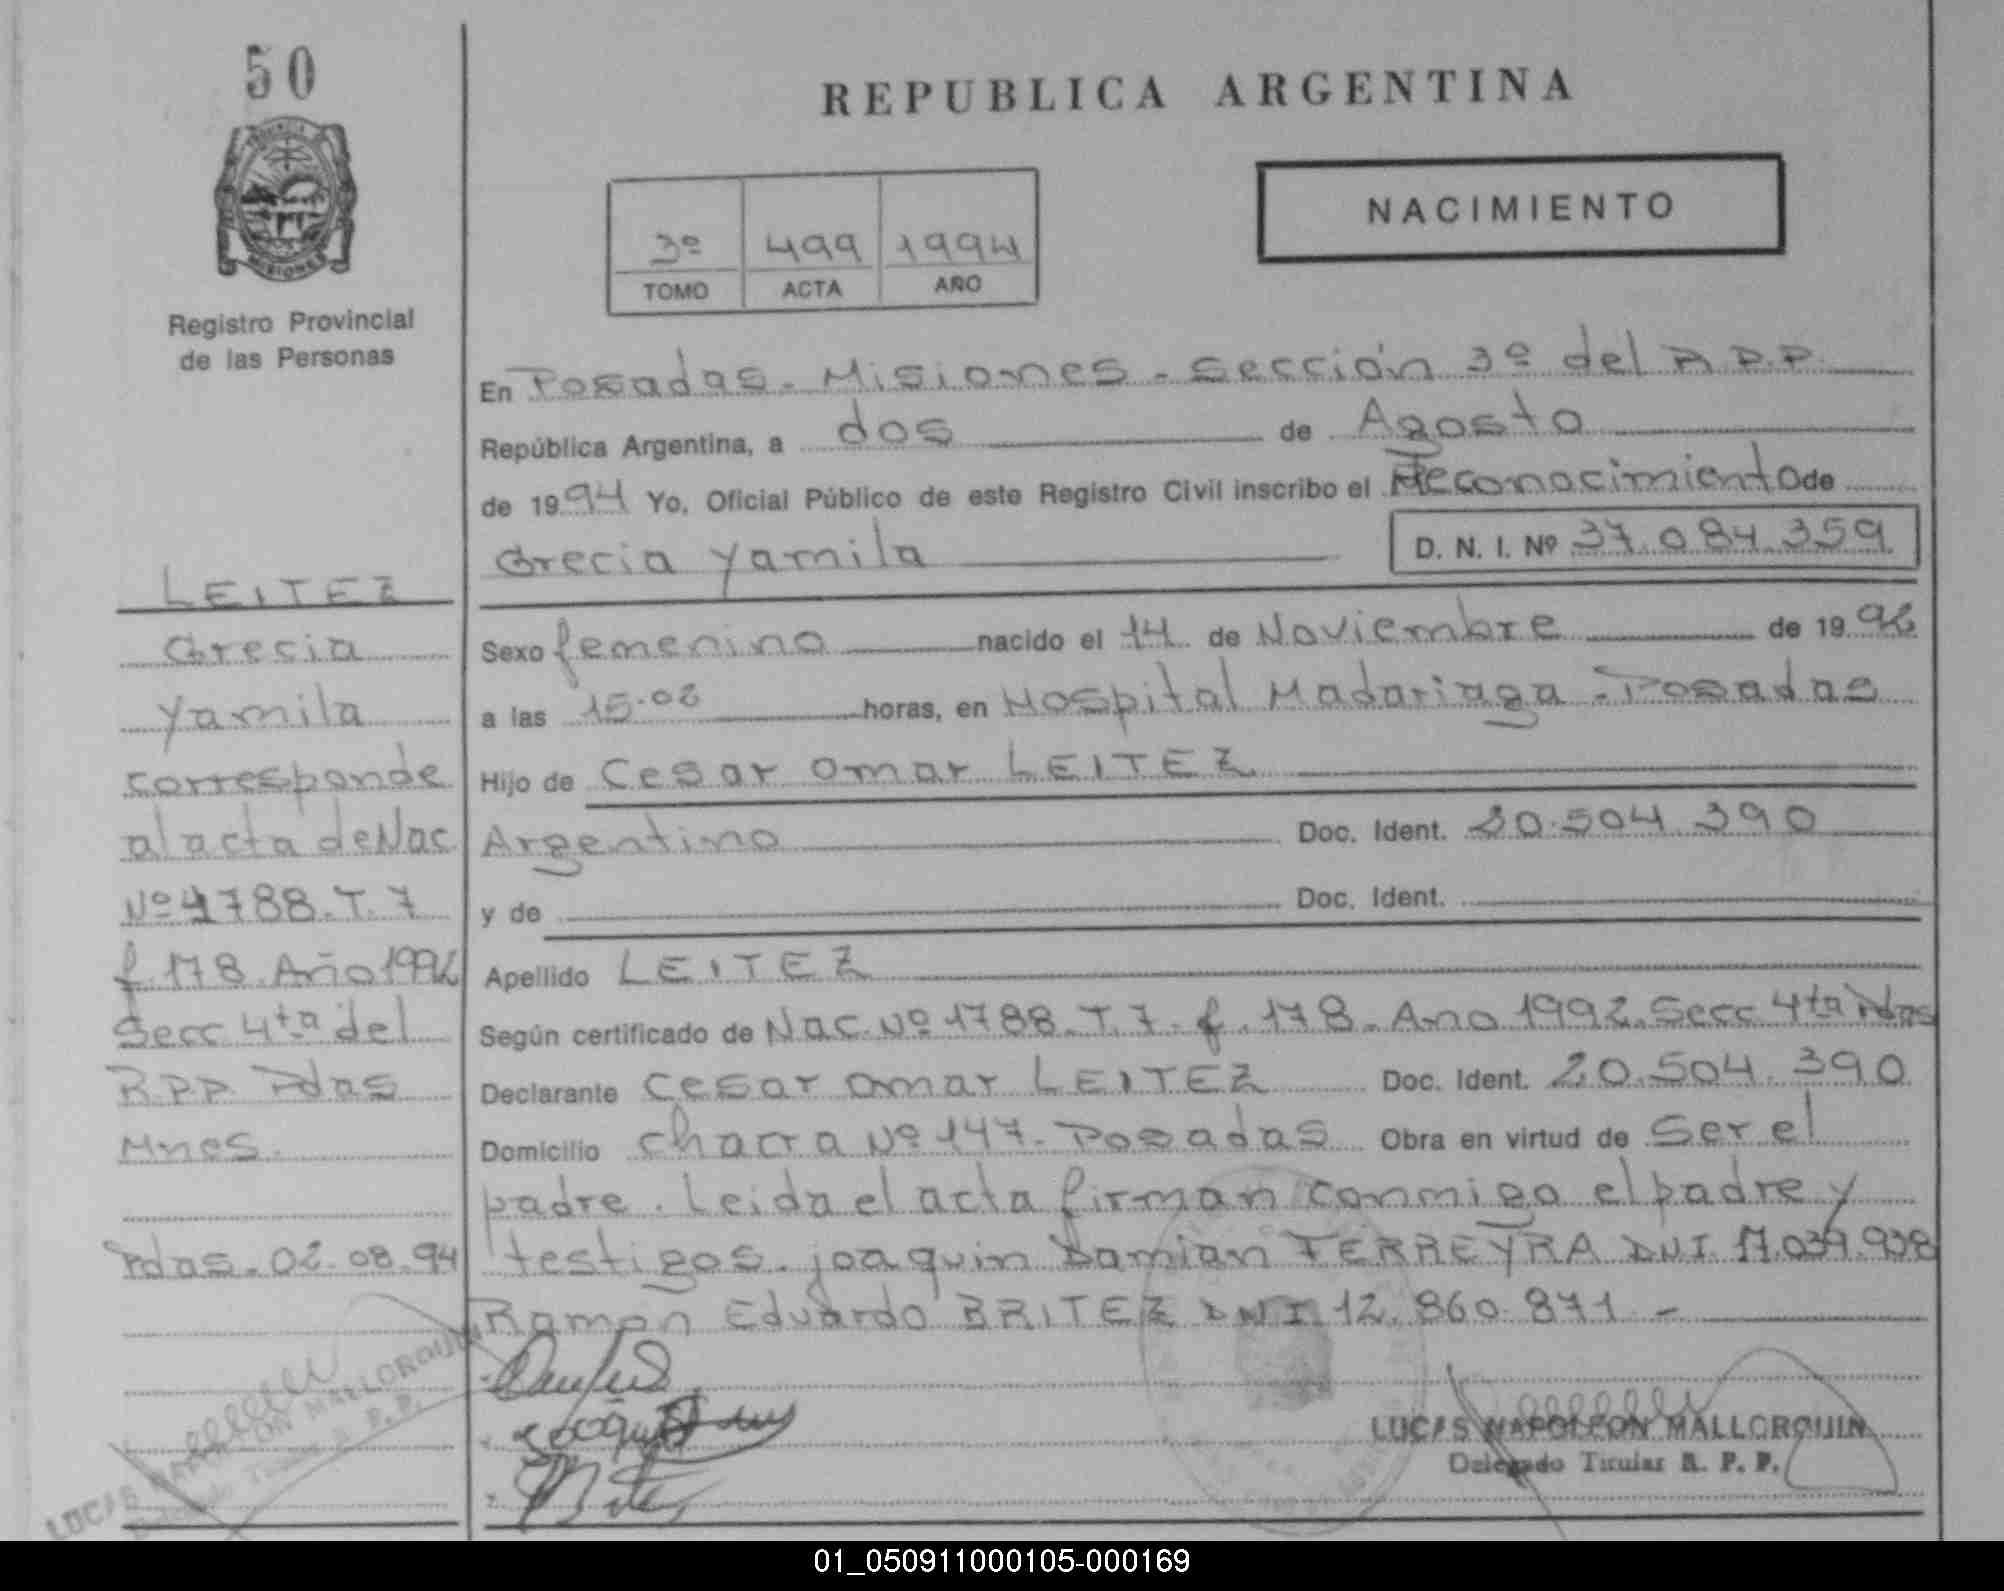 50
PROVINCIA
MISIONES
Registro Provincial
de las Personas
LEITEZ
Grecia
Yamila
corresponde
al acta de Nac
Nº 1788. T. 7
f. 178. Año 1992
Secc 4ta del
R.P.P. Pdas
Mnes.
Pdas. 02.08.94
LUCAS NAPOLEON MALLORQUIN
Delegado Titular R. P. P.
REPUBLICA ARGENTINA
NACIMIENTO
3º 499 1994
TOMO ACTA AÑO
En Posadas. Misiones. Sección 3º del R.P.P.
República Argentina, a dos de Agosto
de 1994 Yo, Oficial Público de este Registro Civil inscribo el Reconocimiento de
Grecia Yamila D. N. I. Nº 37.084.359
Sexo femenino nacido el 14 de Noviembre de 1992
a las 15.02 horas, en Hospital Madariaga - Posadas
Hijo de Cesar Omar LEITEZ
Argentino Doc. Ident. 20.504.390
y de Doc. Ident.
Apellido LEITEZ
Según certificado de Nac. Nº 1788. T. 7. f. 178. Año 1992. Secc 4ta Pdas
Declarante Cesar Omar LEITEZ Doc. Ident. 20.504.390
Domicilio Chacra Nº 147. Posadas Obra en virtud de Ser el
padre. Leida el acta firman conmigo el padre y
testigos. Joaquin Damian FERREYRA DNI 17.039.938
Ramon Eduardo BRITEZ DNI 12.860.871 -
LUCAS NAPOLEON MALLORQUIN
Delegado Titular R. P. P.
01_050911000105-000169